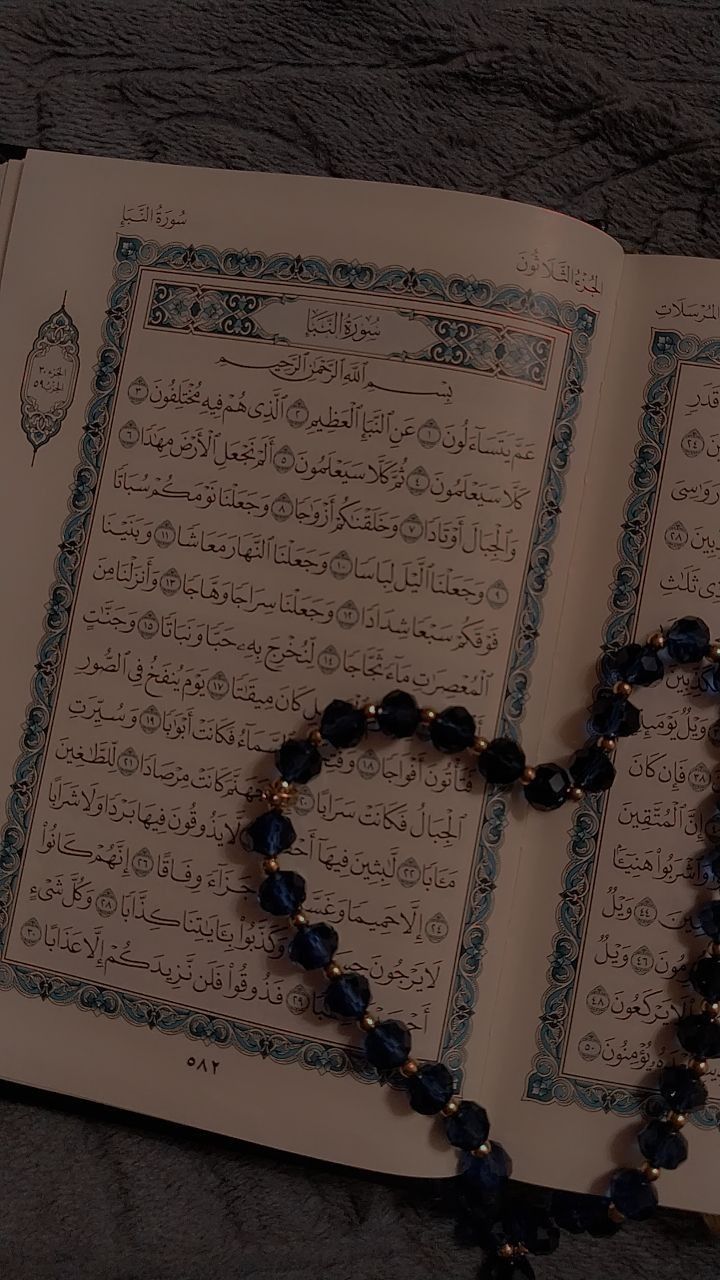 سُورَةُ النَّبَإِ
الجُزْءُ الثَّلَاثُونَ
الجزء ٣٠
الحزب ٥٩
سُورَةُ النَّبَإِ
بِسْمِ ٱللَّهِ ٱلرَّحْمَٰنِ ٱلرَّحِيمِ
عَمَّ يَتَسَآءَلُونَ ١ عَنِ ٱلنَّبَإِ ٱلْعَظِيمِ ٢ ٱلَّذِى هُمْ فِيهِ مُخْتَلِفُونَ ٣
كَلَّا سَيَعْلَمُونَ ٤ ثُمَّ كَلَّا سَيَعْلَمُونَ ٥ أَلَمْ نَجْعَلِ ٱلْأَرْضَ مِهَٰدًا ٦
وَٱلْجِبَالَ أَوْتَادًا ٧ وَخَلَقْنَٰكُمْ أَزْوَٰجًا ٨ وَجَعَلْنَا نَوْمَكُمْ سُبَاتًا
٩ وَجَعَلْنَا ٱلَّيْلَ لِبَاسًا ١٠ وَجَعَلْنَا ٱلنَّهَارَ مَعَاشًا ١١ وَبَنَيْنَا
فَوْقَكُمْ سَبْعًا شِدَادًا ١٢ وَجَعَلْنَا سِرَاجًا وَهَّاجًا ١٣ وَأَنزَلْنَا مِنَ
ٱلْمُعْصِرَٰتِ مَآءً ثَجَّاجًا ١٤ لِّنُخْرِجَ بِهِۦ حَبًّا وَنَبَاتًا ١٥ وَجَنَّٰتٍ
كَانَ مِيقَٰتًا ١٧ يَوْمَ يُنفَخُ فِى ٱلصُّورِ
فَتَأْتُونَ أَفْوَاجًا ١٨ فَكَانَتْ أَبْوَٰبًا ١٩ وَسُيِّرَتِ
ٱلْجِبَالُ فَكَانَتْ سَرَابًا ٢٠ جَهَنَّمَ كَانَتْ مِرْصَادًا ٢١ لِّلطَّٰغِينَ
مَـَٔابًا ٢٢ لَّٰبِثِينَ فِيهَآ لَّا يَذُوقُونَ فِيهَا بَرْدًا وَلَا شَرَابًا
٢٤ إِلَّا حَمِيمًا جَزَآءً وِفَاقًا ٢٦ إِنَّهُمْ كَانُوا۟
لَا يَرْجُونَ وَكَذَّبُوا۟ بِـَٔايَٰتِنَا كِذَّابًا ٢٨ وَكُلَّ شَىْءٍ
٢٩ فَذُوقُوا۟ فَلَن نَّزِيدَكُمْ إِلَّا عَذَابًا ٣٠
٥٨٢
المُرْسَلَاتِ
قَدَرٍ
٢٤
رَوَٰسِىَ
٢٨
ذِى ثَلَٰثِ
وَيْلٌ يَوْمَئِذٍ
٣٨ فَإِن كَانَ
إِنَّ ٱلْمُتَّقِينَ
وَٱشْرَبُوا۟ هَنِيٓـًٔا
٤٤ وَيْلٌ
٤٦ وَيْلٌ
لَا يَرْكَعُونَ ٤٨
يُؤْمِنُونَ ٥٠